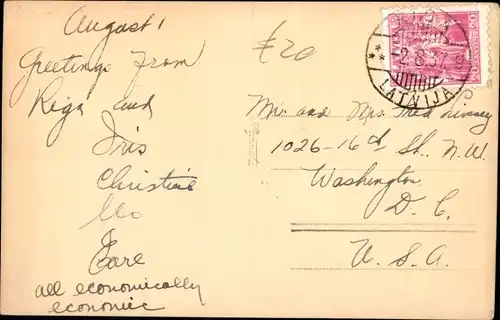 August 1
Greetings from
Riga and
Iris
Christine
Tore
all economically
economic
£20
2.8.37
LATVIJA
Mr. and Mrs. Fred
1026-16th St. N.W.
Washington
D. C.
U. S. A.